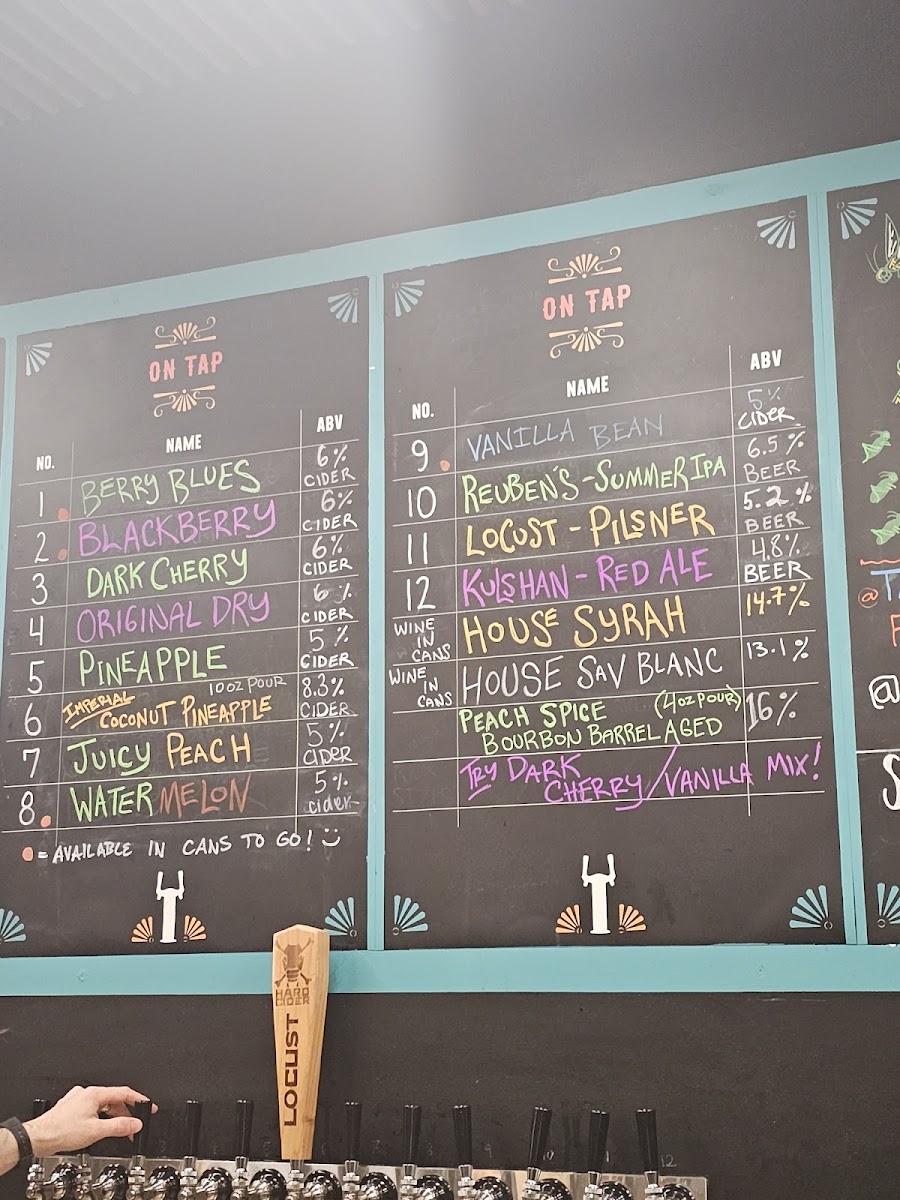 ON TAP
NO. NAME ABV
1 BERRY BLUES 6% CIDER
2 BLACKBERRY 6% CIDER
3 DARK CHERRY 6% CIDER
4 ORIGINAL DRY 6% CIDER
5 PINEAPPLE 5% CIDER
6 IMPERIAL COCONUT PINEAPPLE 10 OZ POUR 8.3% CIDER
7 JUICY PEACH 5% CIDER
8 WATERMELON 5% cider
= AVAILABLE IN CANS TO GO!
ON TAP
NO. NAME ABV
9 VANILLA BEAN 5% CIDER
10 REUBEN'S - SUMMER IPA 6.5% BEER
11 LOCUST - PILSNER 5.2% BEER
12 KULSHAN - RED ALE 4.8% BEER
WINE IN CANS HOUSE SYRAH 14.7%
WINE IN CANS HOUSE SAV BLANC 13.1%
PEACH SPICE (4oz POUR) 16%
BOURBON BARREL AGED
TRY DARK
CHERRY/VANILLA MIX!
@
@
HARD
CIDER
LOCUST
12